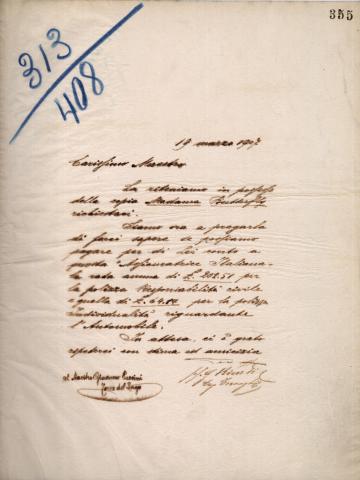 355
313
408
19 marzo 907
Carissimo Maestro
La riteniamo in possesso
della copia Madama Butterfly
richiestaci.
Siamo ora a pregarla
di farci sapere se possiamo
pagare per di Lei conto a
questa Assicuratrice Italiana
la rata annua di £. 202.51 per
la polizza responsabilità civile
e quella di £. 64.80 per la polizza
individualità riguardante
l'Automobile.
In attesa, ci è grato
ripeterci con stima ed amicizia
al Maestro Giacomo Puccini
Torre del Lago